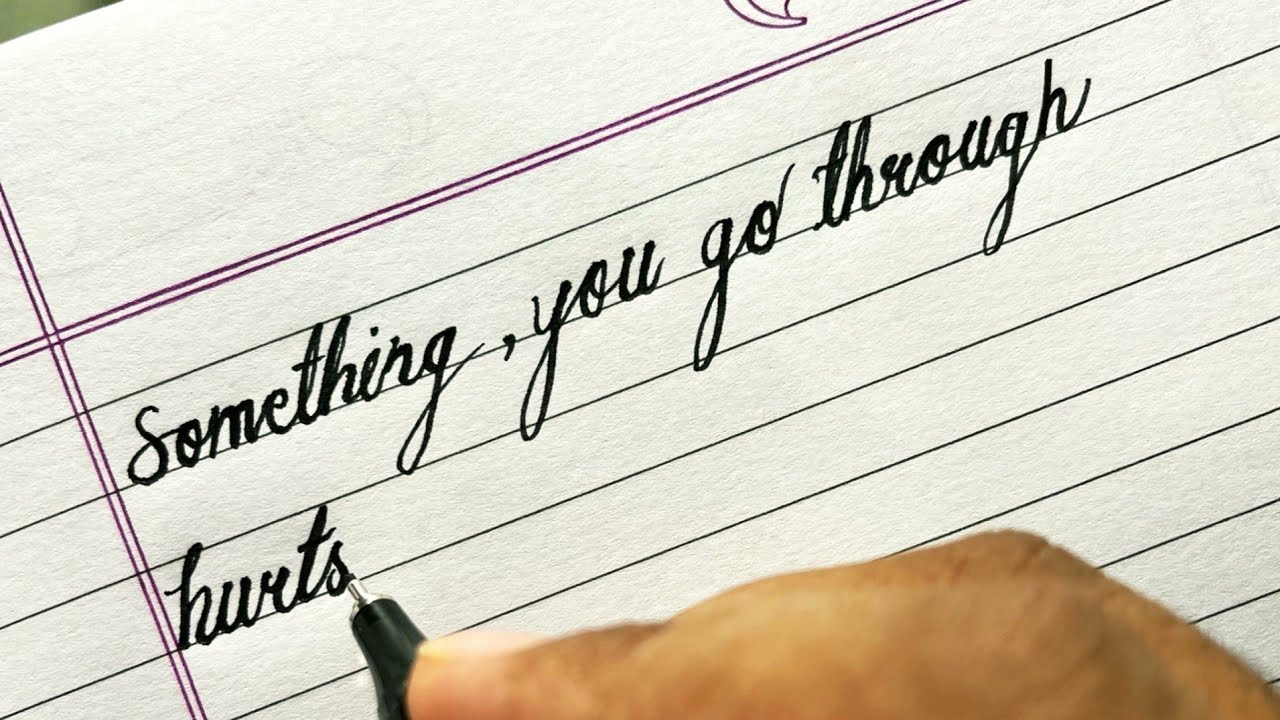 Something , you go through
hurts